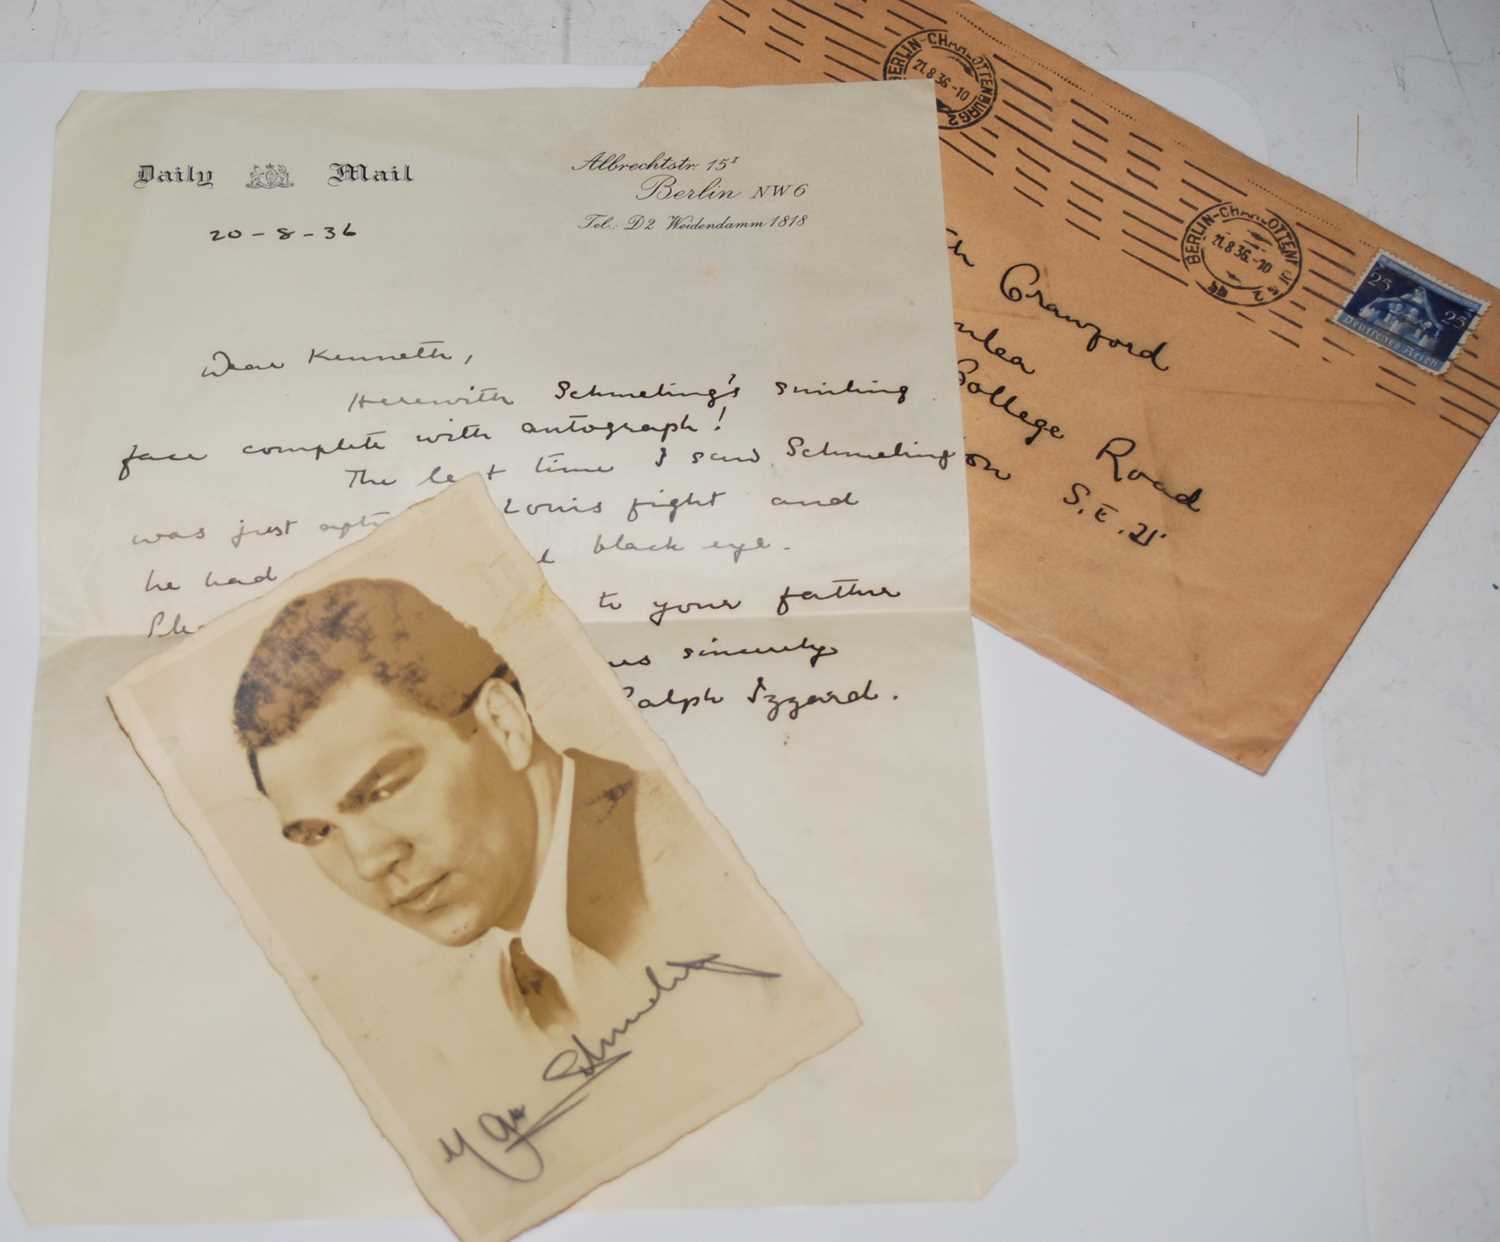 Daily Mail
Albrechtstr. 15ᴵ
Berlin NW6
Tel.: D2 Weidendamm 1818
20-8-36
Dear Kenneth,
Herewith Schmeling's smiling
face complete with autograph!
The last time I saw Schmeling
was just Louis fight and
he had black eye.
to your father
sincerely
Ralph Izzard.
Max Schmeling
BERLIN-CHARLOTTENBURG 2
21.8.36.-10
BERLIN-CHARLOTTENBURG 2
21.8.36.-10
25 25
Deutsches Reich
Crawford
College Road
S.E. 21